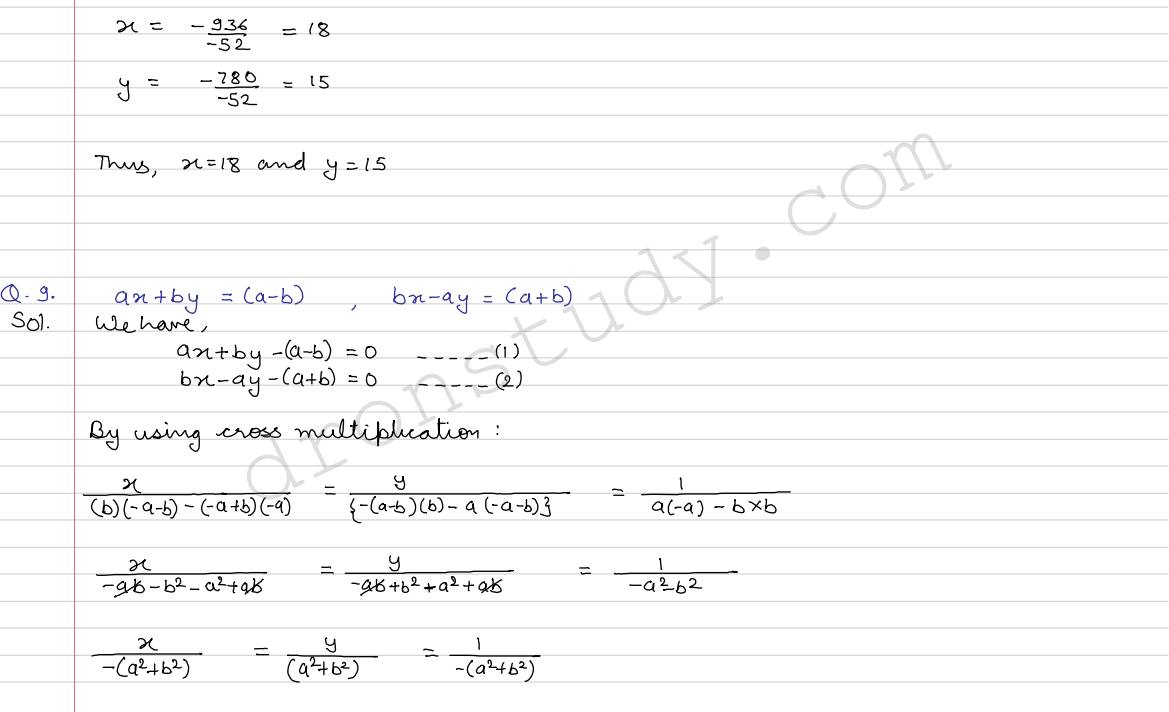 x = -936/-52 = 18
y = -780/-52 = 15
Thus, x=18 and y=15
Q.9. ax+by = (a-b) , bx-ay = (a+b)
Sol. We have,
ax+by-(a-b) = 0 -----(1)
bx-ay-(a+b) = 0 -----(2)
By using cross multiplication :
x/((b)(-a-b)-(-a+b)(-a)) = y/{-(a-b)(b)-a(-a-b)} = 1/(a(-a)-b×b)
x/(-ab-b²-a²+ab) = y/(-ab+b²+a²+ab) = 1/(-a²-b²)
x/(-(a²+b²)) = y/(a²+b²) = 1/(-(a²+b²))
dronstudy.com